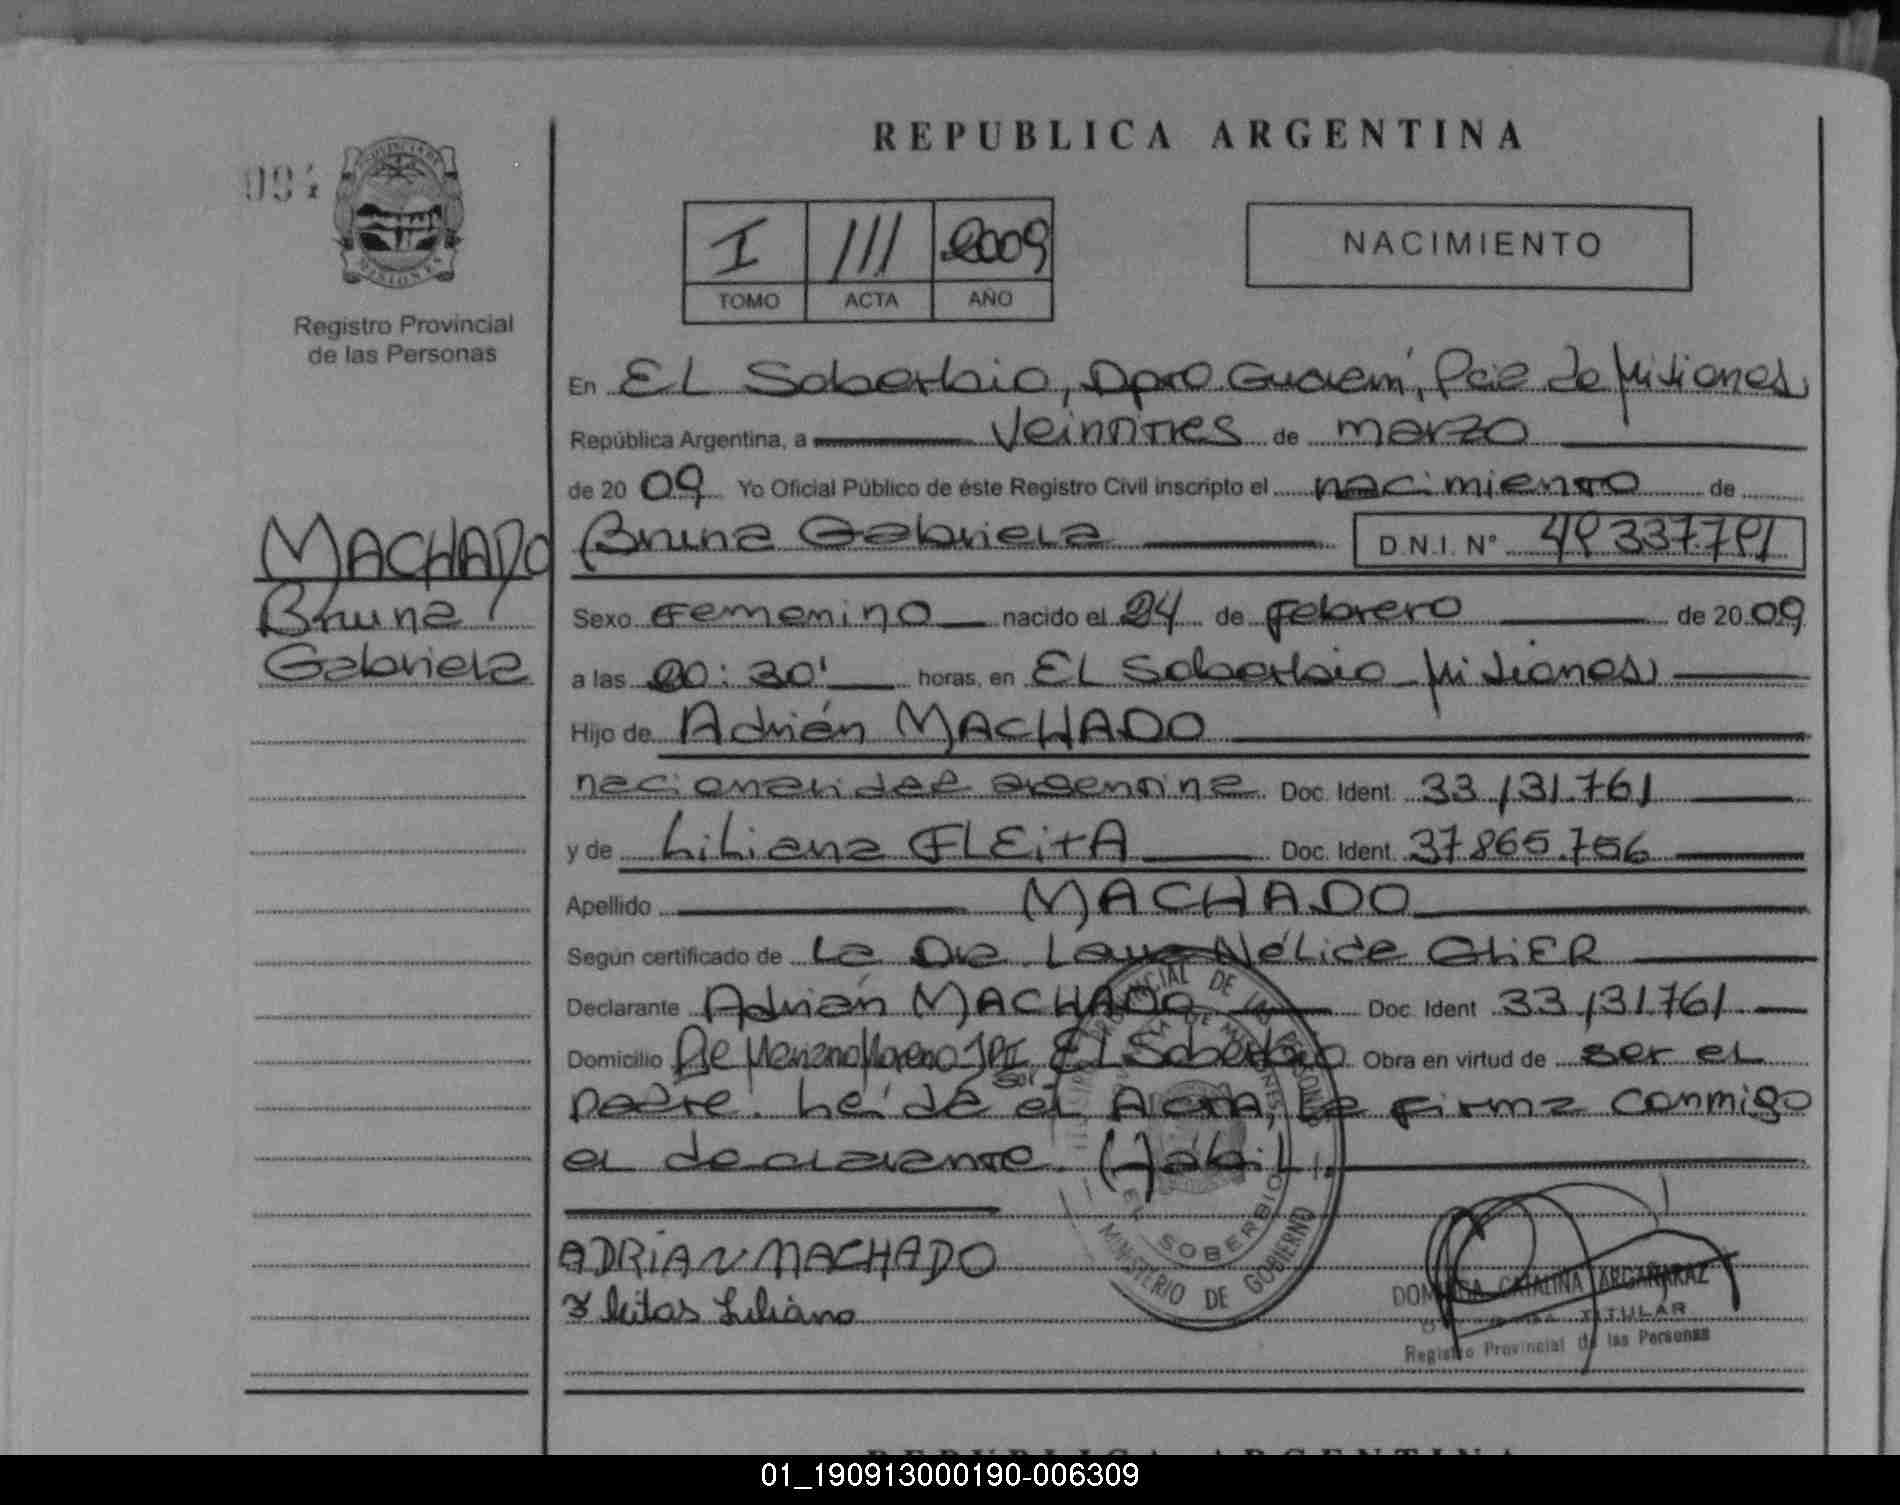 REPUBLICA ARGENTINA
094
PROVINCIA DE
MISIONES
Registro Provincial
de las Personas
I 111 2009
TOMO ACTA AÑO
NACIMIENTO
En EL Soberbio, Dpto Guaraní, Pcia de Misiones
República Argentina, a veintitres de marzo
de 20 09 Yo Oficial Público de éste Registro Civil inscripto el nacimiento de
MACHADO
Bruna
Gabriela
Bruna Gabriela D.N.I. N° 49.337.791
Sexo Femenino nacido el 24 de Febrero de 20 09
a las 20:30' horas, en EL Soberbio Misiones
Hijo de Adrián MACHADO
nacionalidad argentina Doc. Ident. 33.131.761
y de Liliana FLEitA Doc. Ident. 37.865.756
Apellido MACHADO
Según certificado de La Dra Laura Nélida OLiER
Declarante Adrián MACHADO Doc. Ident 33.131.761
Domicilio Mariano Moreno El Soberbio Obra en virtud de ser el
padre. Leída el Acta, la firma conmigo
el declarante.
ADRIAN MACHADO
Fleitas Liliana
REGISTRO PROVINCIAL DE LAS PERSONAS
PROVINCIA DE MISIONES
EL SOBERBIO
MINISTERIO DE GOBIERNO
DOMINGA CATALINA ARGAÑARAZ
TITULAR
Registro Provincial de las Personas
REPUBLICA ARGENTINA
01_190913000190-006309